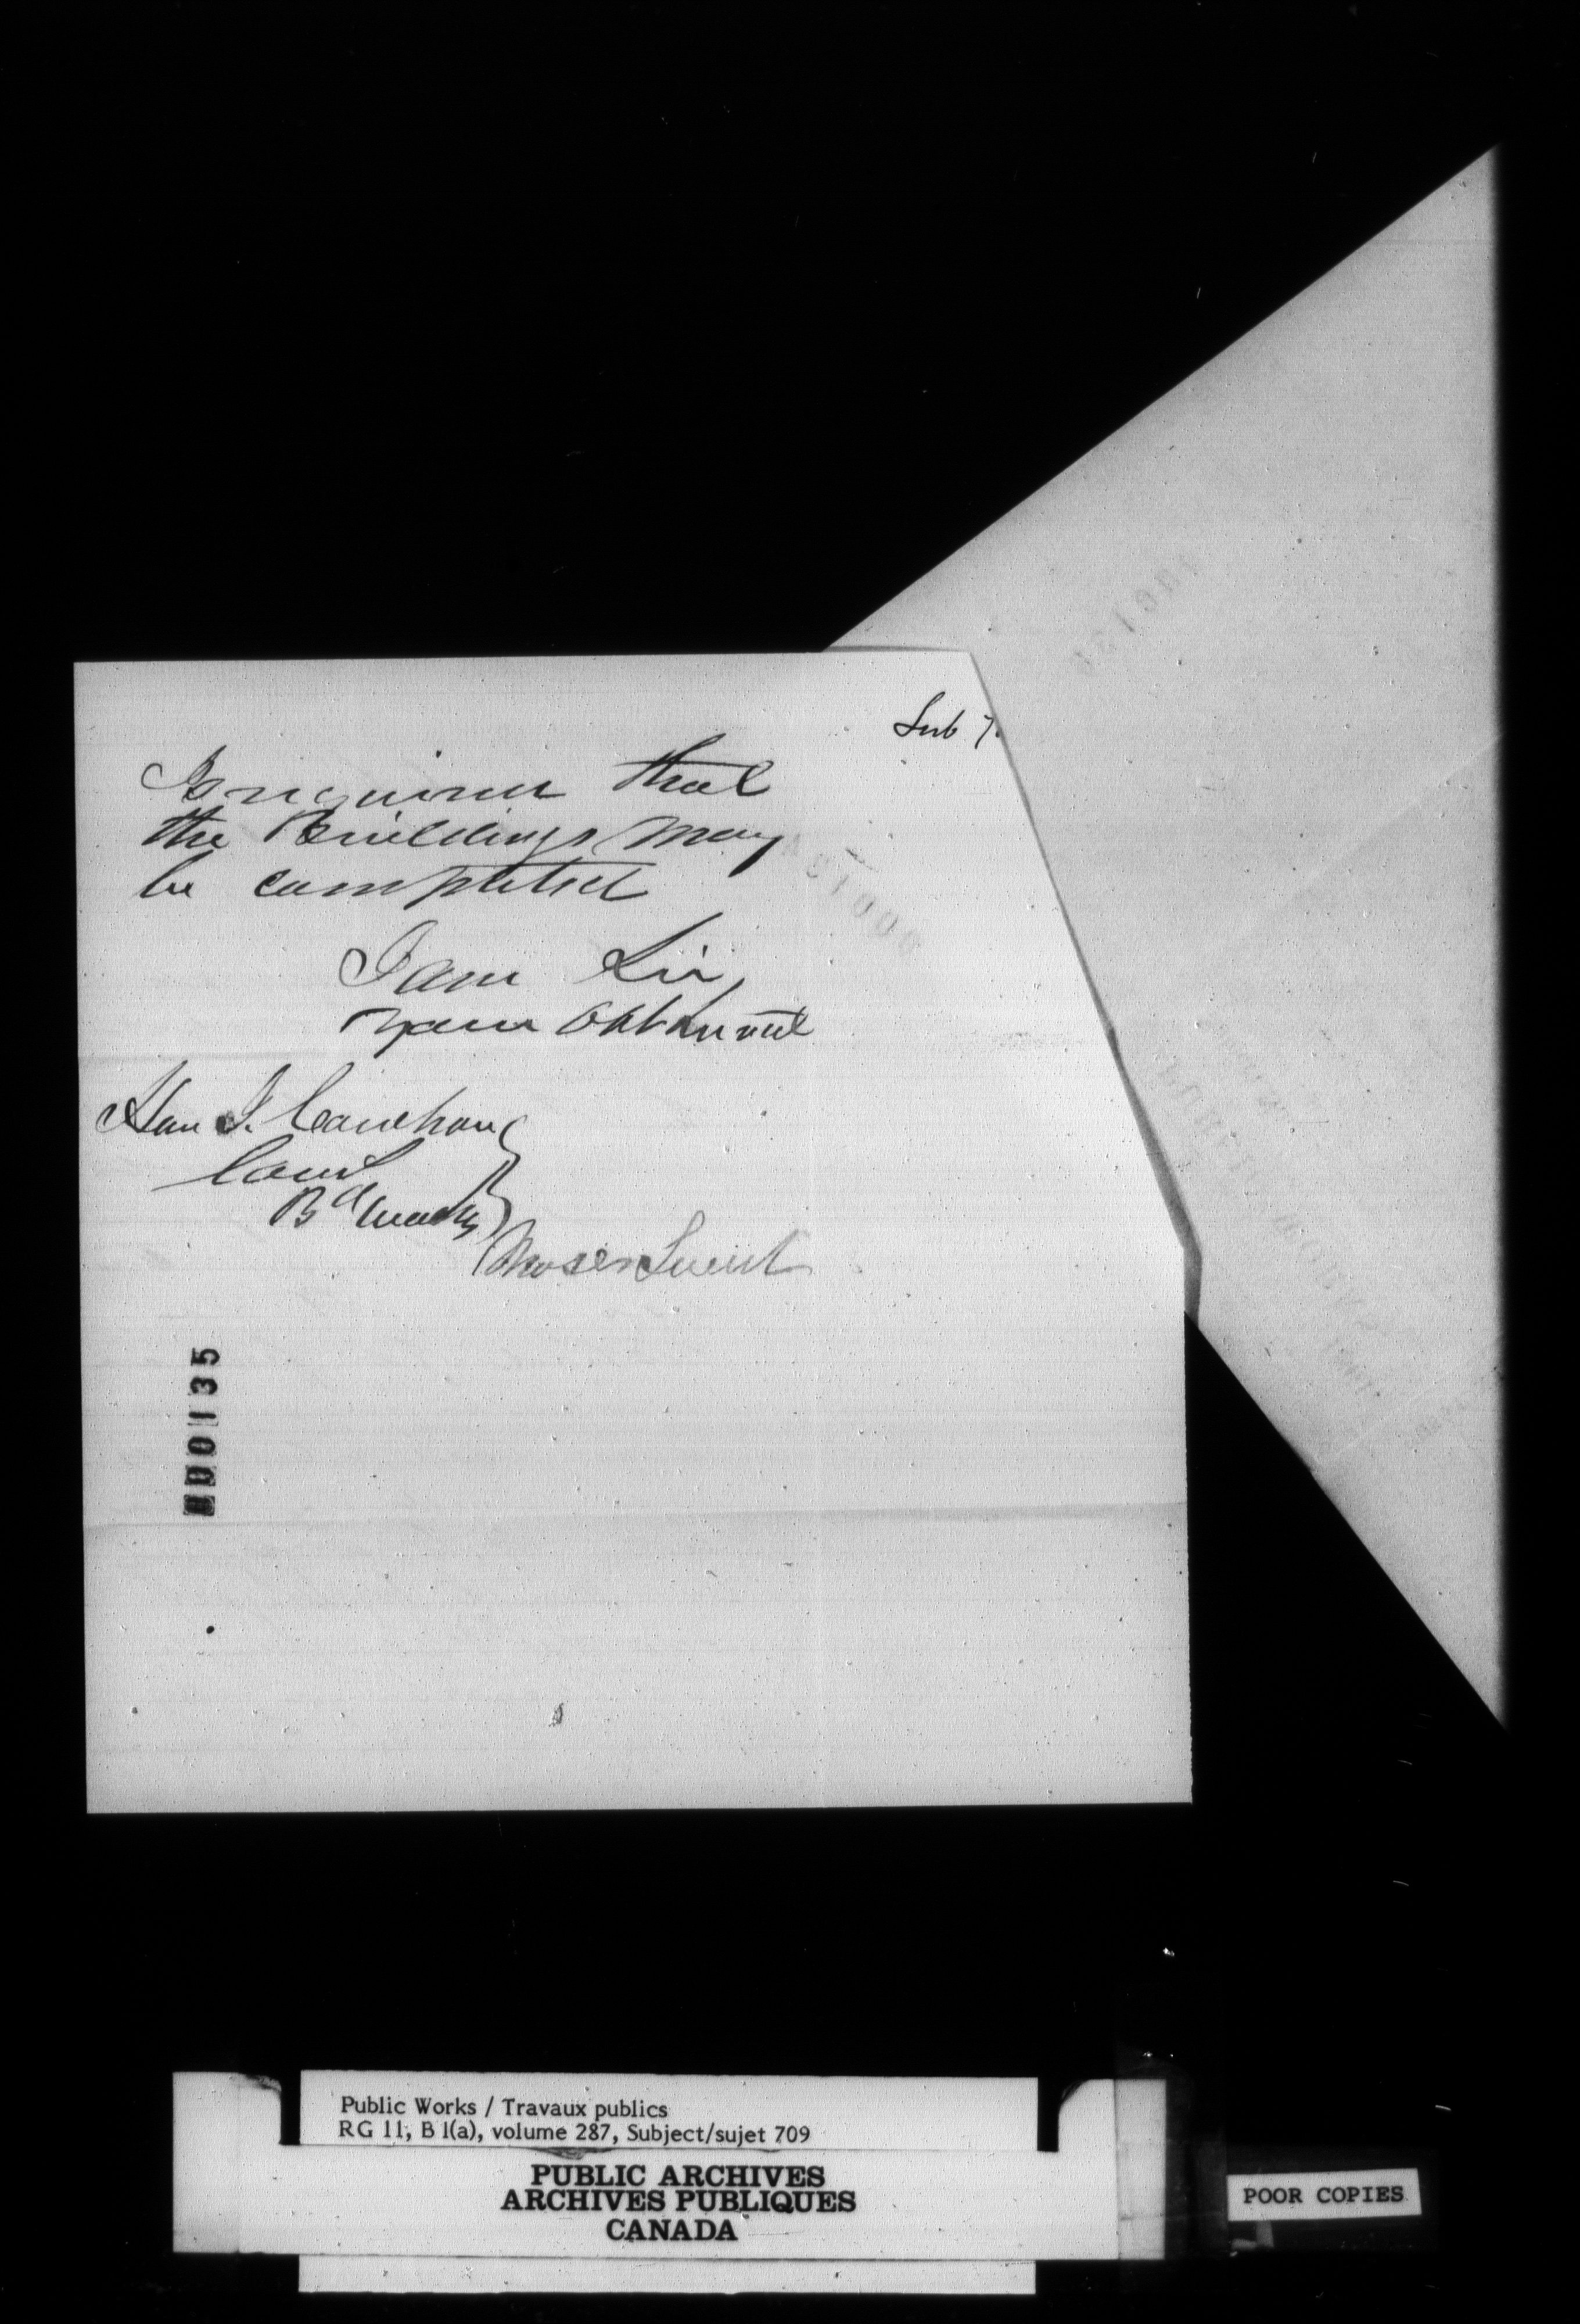 Sub 7
Is required that
the Buildings May
be completed
I am Sir,
Your Obt Servant
Hon J. Cauchon
Comr
Bd Works
Moses Sweet
000135
Public Works / Travaux publics
RG 11, B 1(a), volume 287, Subject/sujet 709
PUBLIC ARCHIVES
ARCHIVES PUBLIQUES
CANADA
POOR COPIES